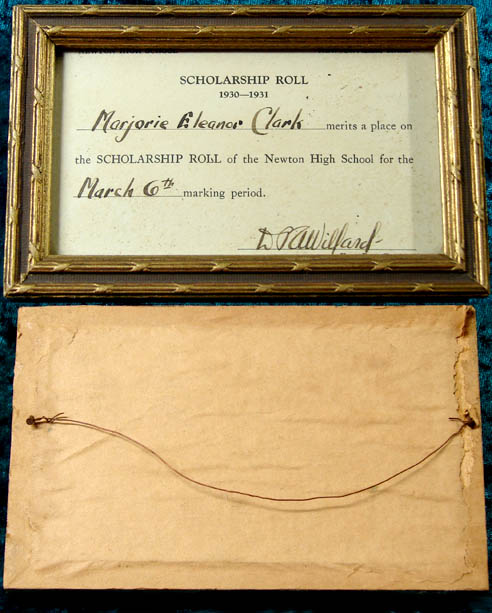 SCHOLARSHIP ROLL
1930—1931
Marjorie Eleanor Clark merits a place on
the SCHOLARSHIP ROLL of the Newton High School for the
March 6th marking period.